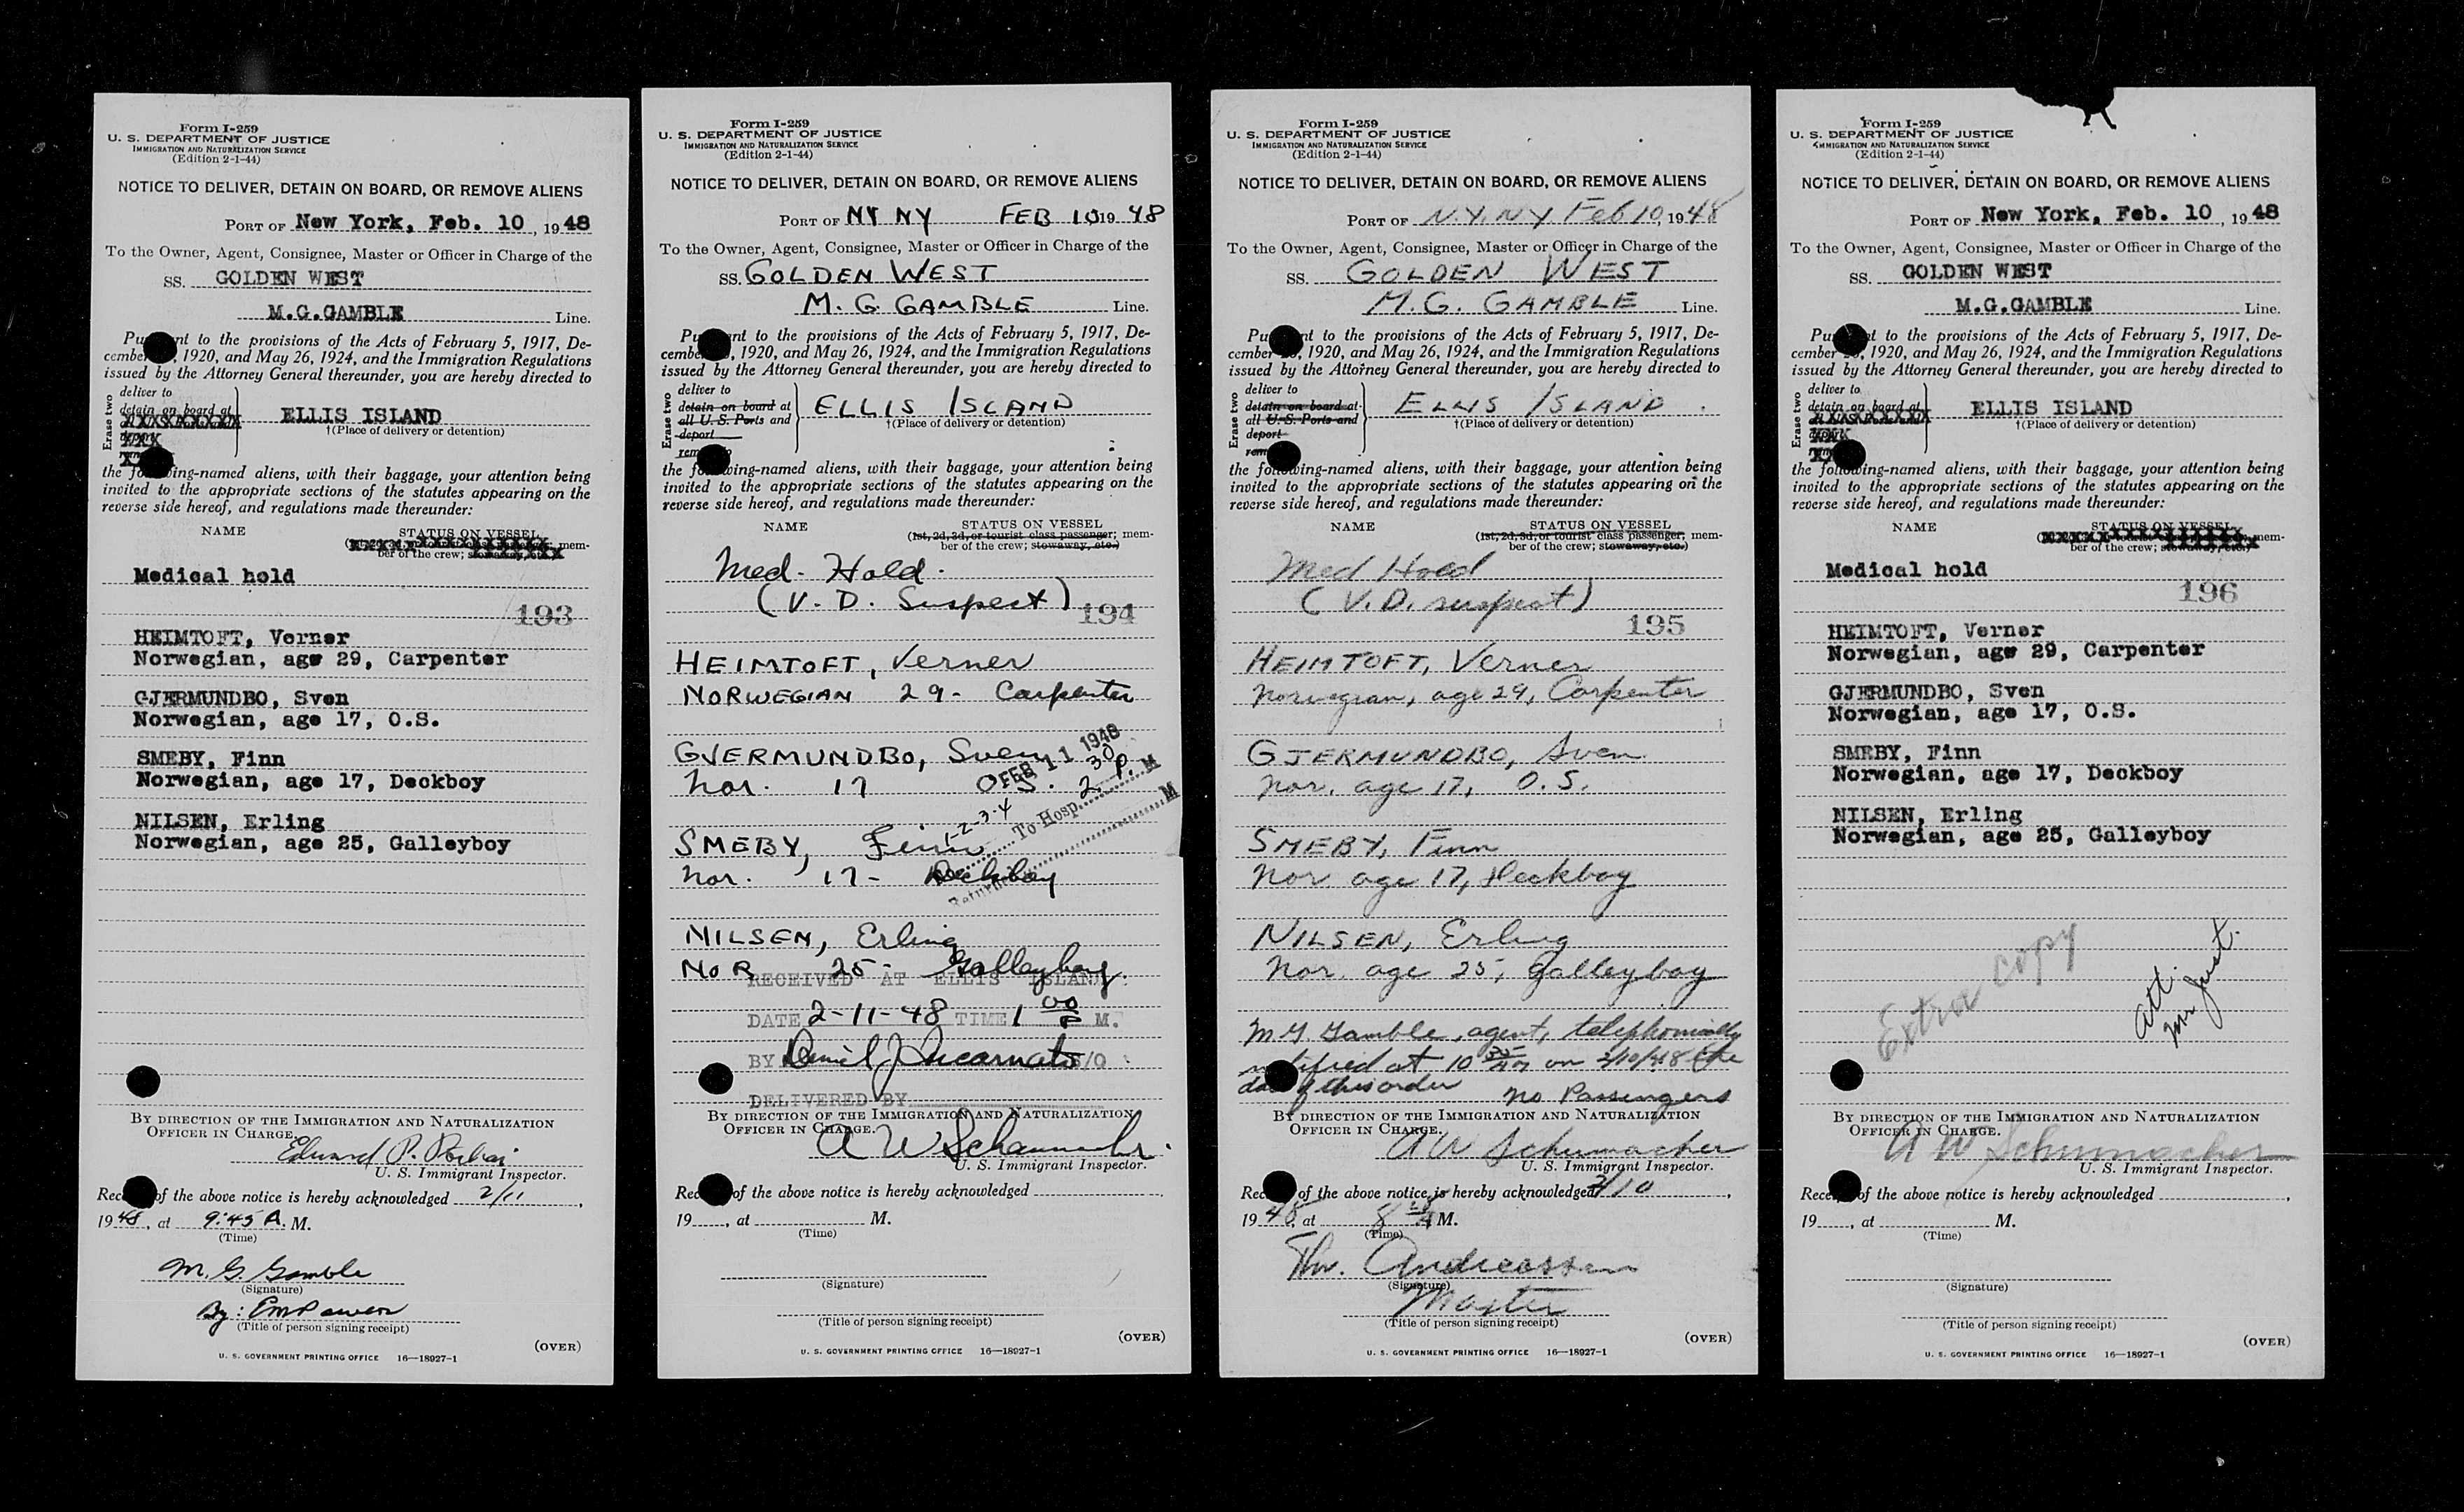 Form I-259
U. S. DEPARTMENT OF JUSTICE
IMMIGRATION AND NATURALIZATION SERVICE
(Edition 2-1-44)
NOTICE TO DELIVER, DETAIN ON BOARD, OR REMOVE ALIENS
PORT OF New York, Feb. 10, 1948
To the Owner, Agent, Consignee, Master or Officer in Charge of the
SS. GOLDEN WEST
M.G.GAMBLE Line.
Pu nt to the provisions of the Acts of February 5, 1917, De-
cember , 1920, and May 26, 1924, and the Immigration Regulations
issued by the Attorney General thereunder, you are hereby directed to
Erase two
deliver to
detain on board at
ELLIS ISLAND
†(Place of delivery or detention)
the fo wing-named aliens, with their baggage, your attention being
invited to the appropriate sections of the statutes appearing on the
reverse side hereof, and regulations made thereunder:
NAME STATUS ON VESSEL
mem-
ber of the crew;
Medical hold
193
HEIMTOFT, Verner
Norwegian, age 29, Carpenter
GJERMUNDBO, Sven
Norwegian, age 17, O.S.
SMEBY, Finn
Norwegian, age 17, Deckboy
NILSEN, Erling
Norwegian, age 25, Galleyboy
BY DIRECTION OF THE IMMIGRATION AND NATURALIZATION
OFFICER IN CHARGE.
Edward P.
U. S. Immigrant Inspector.
Rec of the above notice is hereby acknowledged 2/11,
1948, at 9:45 A. M.
(Time)
M. G. Gamble
(Signature)
By:
(Title of person signing receipt)
(OVER)
U. S. GOVERNMENT PRINTING OFFICE 16—18927-1
Form I-259
U. S. DEPARTMENT OF JUSTICE
IMMIGRATION AND NATURALIZATION SERVICE
(Edition 2-1-44)
NOTICE TO DELIVER, DETAIN ON BOARD, OR REMOVE ALIENS
PORT OF NY NY FEB 10 1948
To the Owner, Agent, Consignee, Master or Officer in Charge of the
SS. GOLDEN WEST
M. G. GAMBLE Line.
Pu nt to the provisions of the Acts of February 5, 1917, De-
cembe , 1920, and May 26, 1924, and the Immigration Regulations
issued by the Attorney General thereunder, you are hereby directed to
Erase two
deliver to
detain on board at
all U. S. Ports and
deport
rem
ELLIS ISLAND
†(Place of delivery or detention)
the fo wing-named aliens, with their baggage, your attention being
invited to the appropriate sections of the statutes appearing on the
reverse side hereof, and regulations made thereunder:
NAME STATUS ON VESSEL
(1st, 2d, 3d, or tourist class passenger; mem-
ber of the crew; stowaway, etc.)
Med. Hold.
(V. D. Suspect)
194
HEIMTOFT, Verner
NORWEGIAN 29- Carpenter
GJERMUNDBO, Sven
FEB 11 1948
Nor. 17 O.S. 2 30 P. M
1-2-3-4 To Hosp. M
SMEBY, Finn
Nor. 17- Deckboy
NILSEN, Erling
NOR 25- Galleyboy.
RECEIVED AT ELLIS ISLAND
DATE 2-11-48 TIME 1 00 P M.
BY Daniel J Incarnato /O
DELIVERED BY
BY DIRECTION OF THE IMMIGRATION AND NATURALIZATION
OFFICER IN CHARGE.
A W Schumacher
U. S. Immigrant Inspector.
Rec of the above notice is hereby acknowledged
19 , at M.
(Time)
(Signature)
(Title of person signing receipt)
(OVER)
U. S. GOVERNMENT PRINTING OFFICE 16—18927-1
Form I-259
U. S. DEPARTMENT OF JUSTICE
IMMIGRATION AND NATURALIZATION SERVICE
(Edition 2-1-44)
NOTICE TO DELIVER, DETAIN ON BOARD, OR REMOVE ALIENS
PORT OF N.Y. NY Feb 10, 1948
To the Owner, Agent, Consignee, Master or Officer in Charge of the
SS. GOLDEN WEST
M.G. GAMBLE Line.
Pu nt to the provisions of the Acts of February 5, 1917, De-
cember , 1920, and May 26, 1924, and the Immigration Regulations
issued by the Attorney General thereunder, you are hereby directed to
Erase two
deliver to
detain on board at
all U. S. Ports and
deport
rem
ELLIS ISLAND
†(Place of delivery or detention)
the following-named aliens, with their baggage, your attention being
invited to the appropriate sections of the statutes appearing on the
reverse side hereof, and regulations made thereunder:
NAME STATUS ON VESSEL
(1st, 2d, 3d, or tourist class passenger; mem-
ber of the crew; stowaway, etc.)
Med Hold
(V.D. suspect)
195
HEIMTOFT, Verner
Norwegian, age 29, Carpenter
GJERMUNDBO, Sven
Nor. age 17, O.S.
SMEBY, Finn
Nor age 17, Deckboy
NILSEN, Erling
Nor. age 25, galleyboy
M. G. Gamble, agent, telephonically
notified at 10 35 AM on 2/10/48 the
da of this order
No Passengers
BY DIRECTION OF THE IMMIGRATION AND NATURALIZATION
OFFICER IN CHARGE.
A W Schumacher
U. S. Immigrant Inspector.
Rec of the above notice is hereby acknowledged 2/10,
1948, at 8 A M.
(Time)
Thv. Andreassen
(Signature)
Master
(Title of person signing receipt)
(OVER)
U. S. GOVERNMENT PRINTING OFFICE 16—18927-1
Form I-259
U. S. DEPARTMENT OF JUSTICE
IMMIGRATION AND NATURALIZATION SERVICE
(Edition 2-1-44)
NOTICE TO DELIVER, DETAIN ON BOARD, OR REMOVE ALIENS
PORT OF New York, Feb. 10, 1948
To the Owner, Agent, Consignee, Master or Officer in Charge of the
SS. GOLDEN WEST
M.G.GAMBLE Line.
Pu nt to the provisions of the Acts of February 5, 1917, De-
cember , 1920, and May 26, 1924, and the Immigration Regulations
issued by the Attorney General thereunder, you are hereby directed to
Erase two
deliver to
detain on board at
ELLIS ISLAND
†(Place of delivery or detention)
the following-named aliens, with their baggage, your attention being
invited to the appropriate sections of the statutes appearing on the
reverse side hereof, and regulations made thereunder:
NAME STATUS ON VESSEL
mem-
ber of the crew;
Medical hold
196
HEIMTOFT, Verner
Norwegian, age 29, Carpenter
GJERMUNDBO, Sven
Norwegian, age 17, O.S.
SMEBY, Finn
Norwegian, age 17, Deckboy
NILSEN, Erling
Norwegian, age 25, Galleyboy
Extra copy
Att.
Mr Just.
BY DIRECTION OF THE IMMIGRATION AND NATURALIZATION
OFFICER IN CHARGE.
A W Schumacher
U. S. Immigrant Inspector.
Rece of the above notice is hereby acknowledged ,
19 , at M.
(Time)
(Signature)
(Title of person signing receipt)
(OVER)
U. S. GOVERNMENT PRINTING OFFICE 16—18927-1